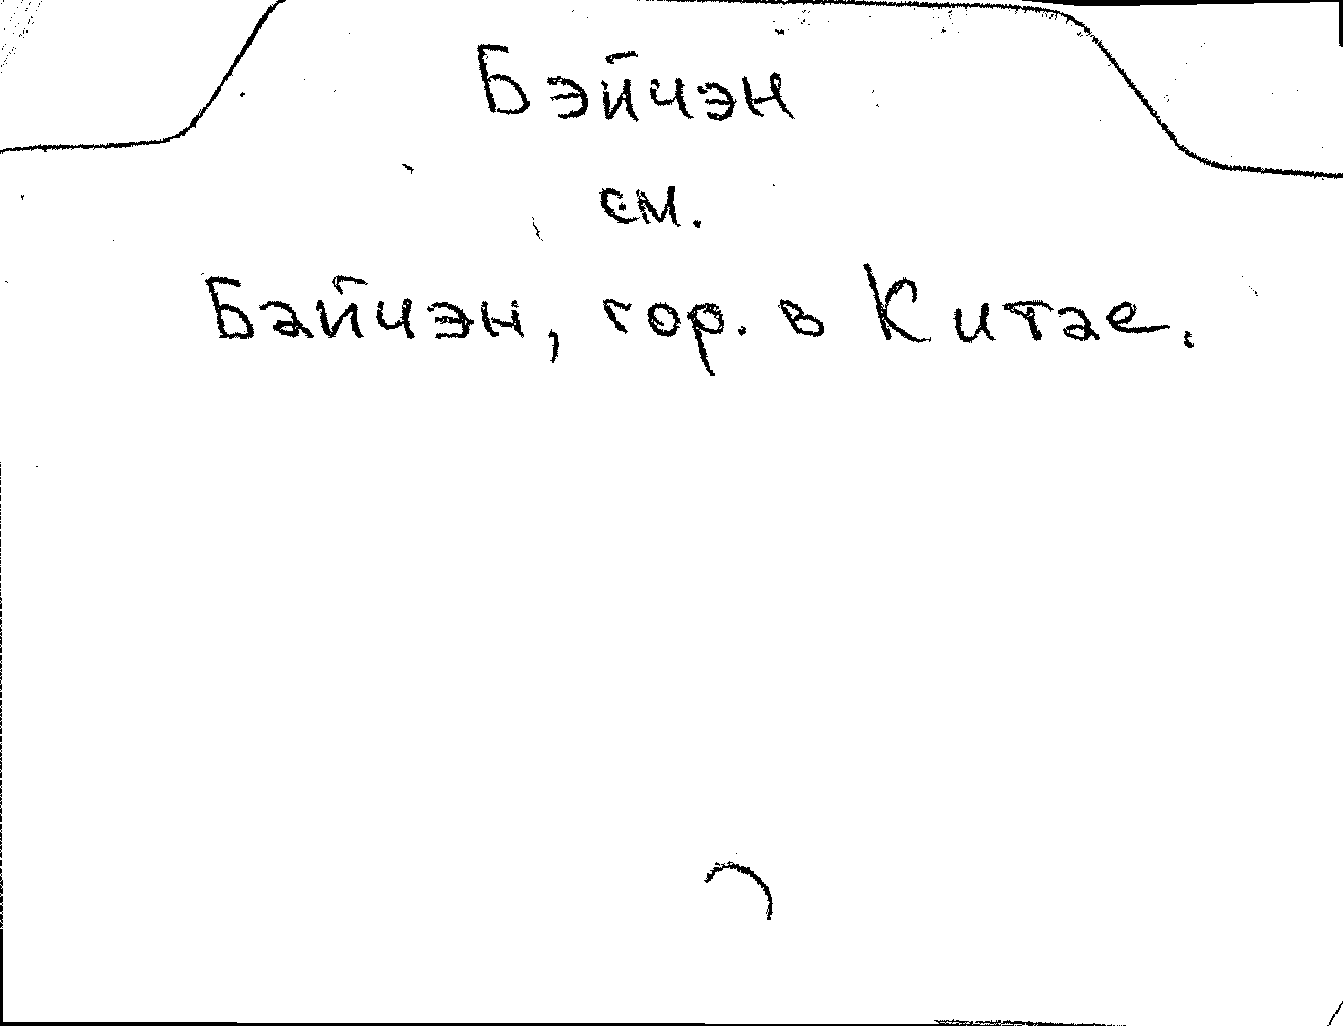 Бэйчэн
см.
Байчэн, гор. в Китае.